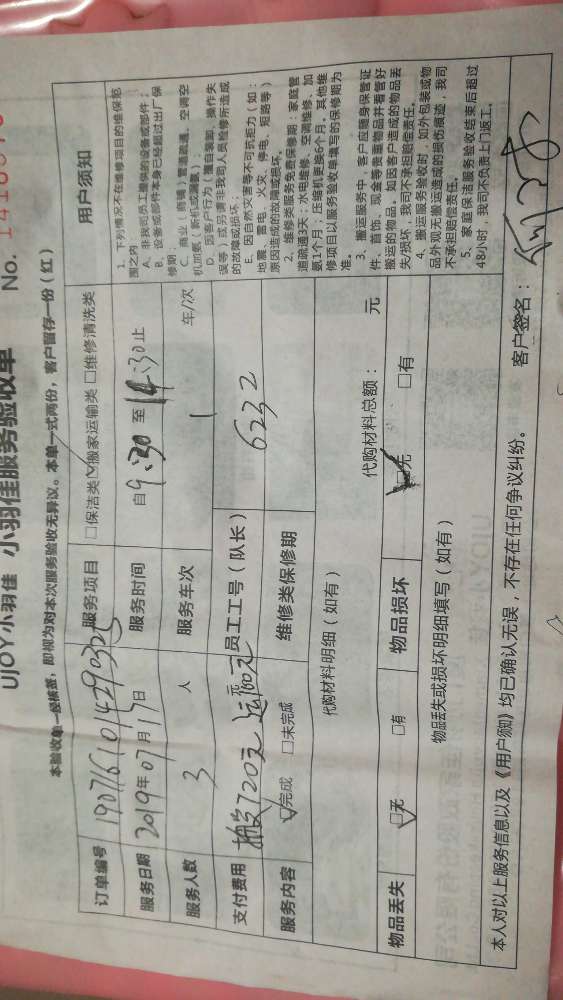 UJOY小羽佳 小羽佳服务验收单 No.
本验收单一经核签，即视为对本次服务验收无异议。本单一式两份，客户留存一份（红）
订单编号 服务项目 □保洁类 ☑搬家运输类 □维修清洗类
服务日期 2019年07月17日 服务时间 自9:30至14:30止
服务人数 3人 服务车次 1 车/次
支付费用 720元 员工工号（队长） 6232
服务内容 ☑完成 □未完成 维修类保修期
代购材料明细（如有） 代购材料总额： 元
物品丢失 ☑无 □有 物品损坏 ☑无 □有
物品丢失或损坏明细填写（如有）
用户须知
1、下列情况不在维修项目的维保范
围之内
A、非我司员工提供的设备或部件；
B、设备或部件本身已经超过出厂保
修期
C、商业（店铺）管道疏通、空调空
机加氨（任何机或漏氨）
D、因客户行为（擅自装卸、操作失
误等）或另请非我司人员维修所造成
的故障或损坏；
E、因自然灾害等不可抗拒力（如：
地震、雷电、火灾、停电、短路等）
原因造成的故障或损坏。
2、维修类服务免费保修期：家庭管
道疏通3天；水电维修、空调维修、加
氨1个月；压缩机更换6个月，其他维
修项目以服务验收单填写的保修期为
准。
3、搬运服务中，客户应随身保管证
件、首饰、现金等贵重物品并看管好
搬运的物品。如因客户造成的物品丢
失/损坏，我司不承担赔偿责任。
4、搬运服务验收时，如外包装或物
品外观无搬运造成的损伤痕迹，我司
不承担赔偿责任。
5、家庭保洁服务验收结束后超过
48小时，我司不负责上门返工。
本人对以上服务信息以及《用户须知》均已确认无误，不存在任何争议纠纷。 客户签名：